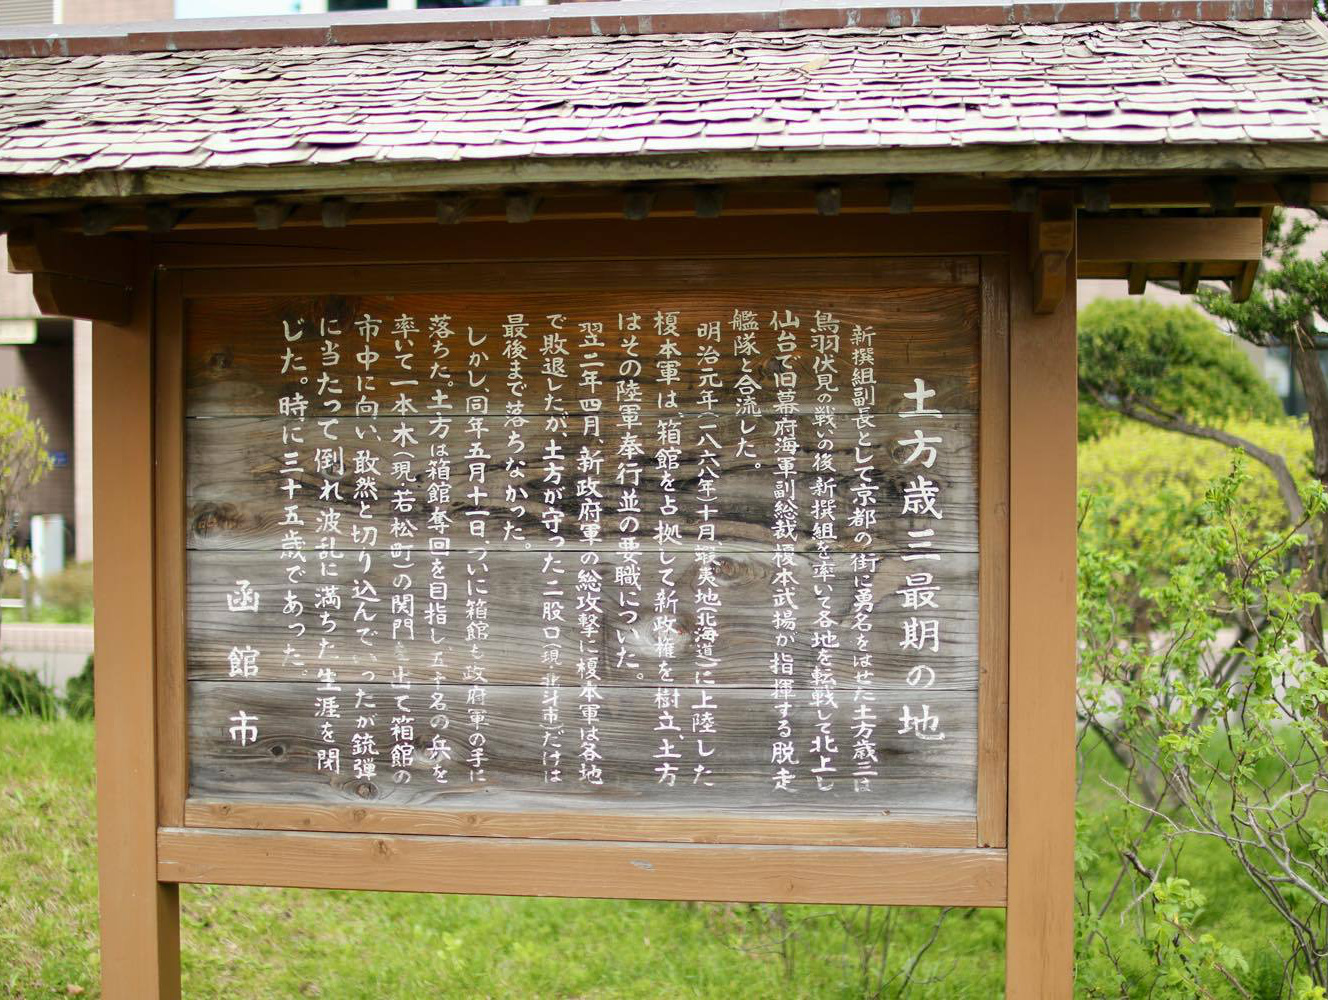 土方歳三最期の地
新撰組副長として京都の街に勇名をはせた土方歳三は
鳥羽伏見の戦いの後、新撰組を率いて各地を転戦して北上し
仙台で旧幕府海軍副総裁榎本武揚が指揮する脱走
艦隊と合流した。
明治元年(一八六八年)十月、蝦夷地(北海道)に上陸した
榎本軍は、箱館を占拠して新政権を樹立、土方
はその陸軍奉行並の要職についた。
翌二年四月、新政府軍の総攻撃に榎本軍は各地
で敗退したが、土方が守った二股口(現 北斗市)だけは
最後まで落ちなかった。
しかし、同年五月十一日、ついに箱館も政府軍の手に
落ちた。土方は箱館奪回を目指し、五十名の兵を
率いて一本木(現 若松町)の関門を出て箱館の
市中に向い、敢然と切り込んでいったが銃弾
に当たって倒れ波乱に満ちた生涯を閉
じた。時に三十五歳であった。
函館市